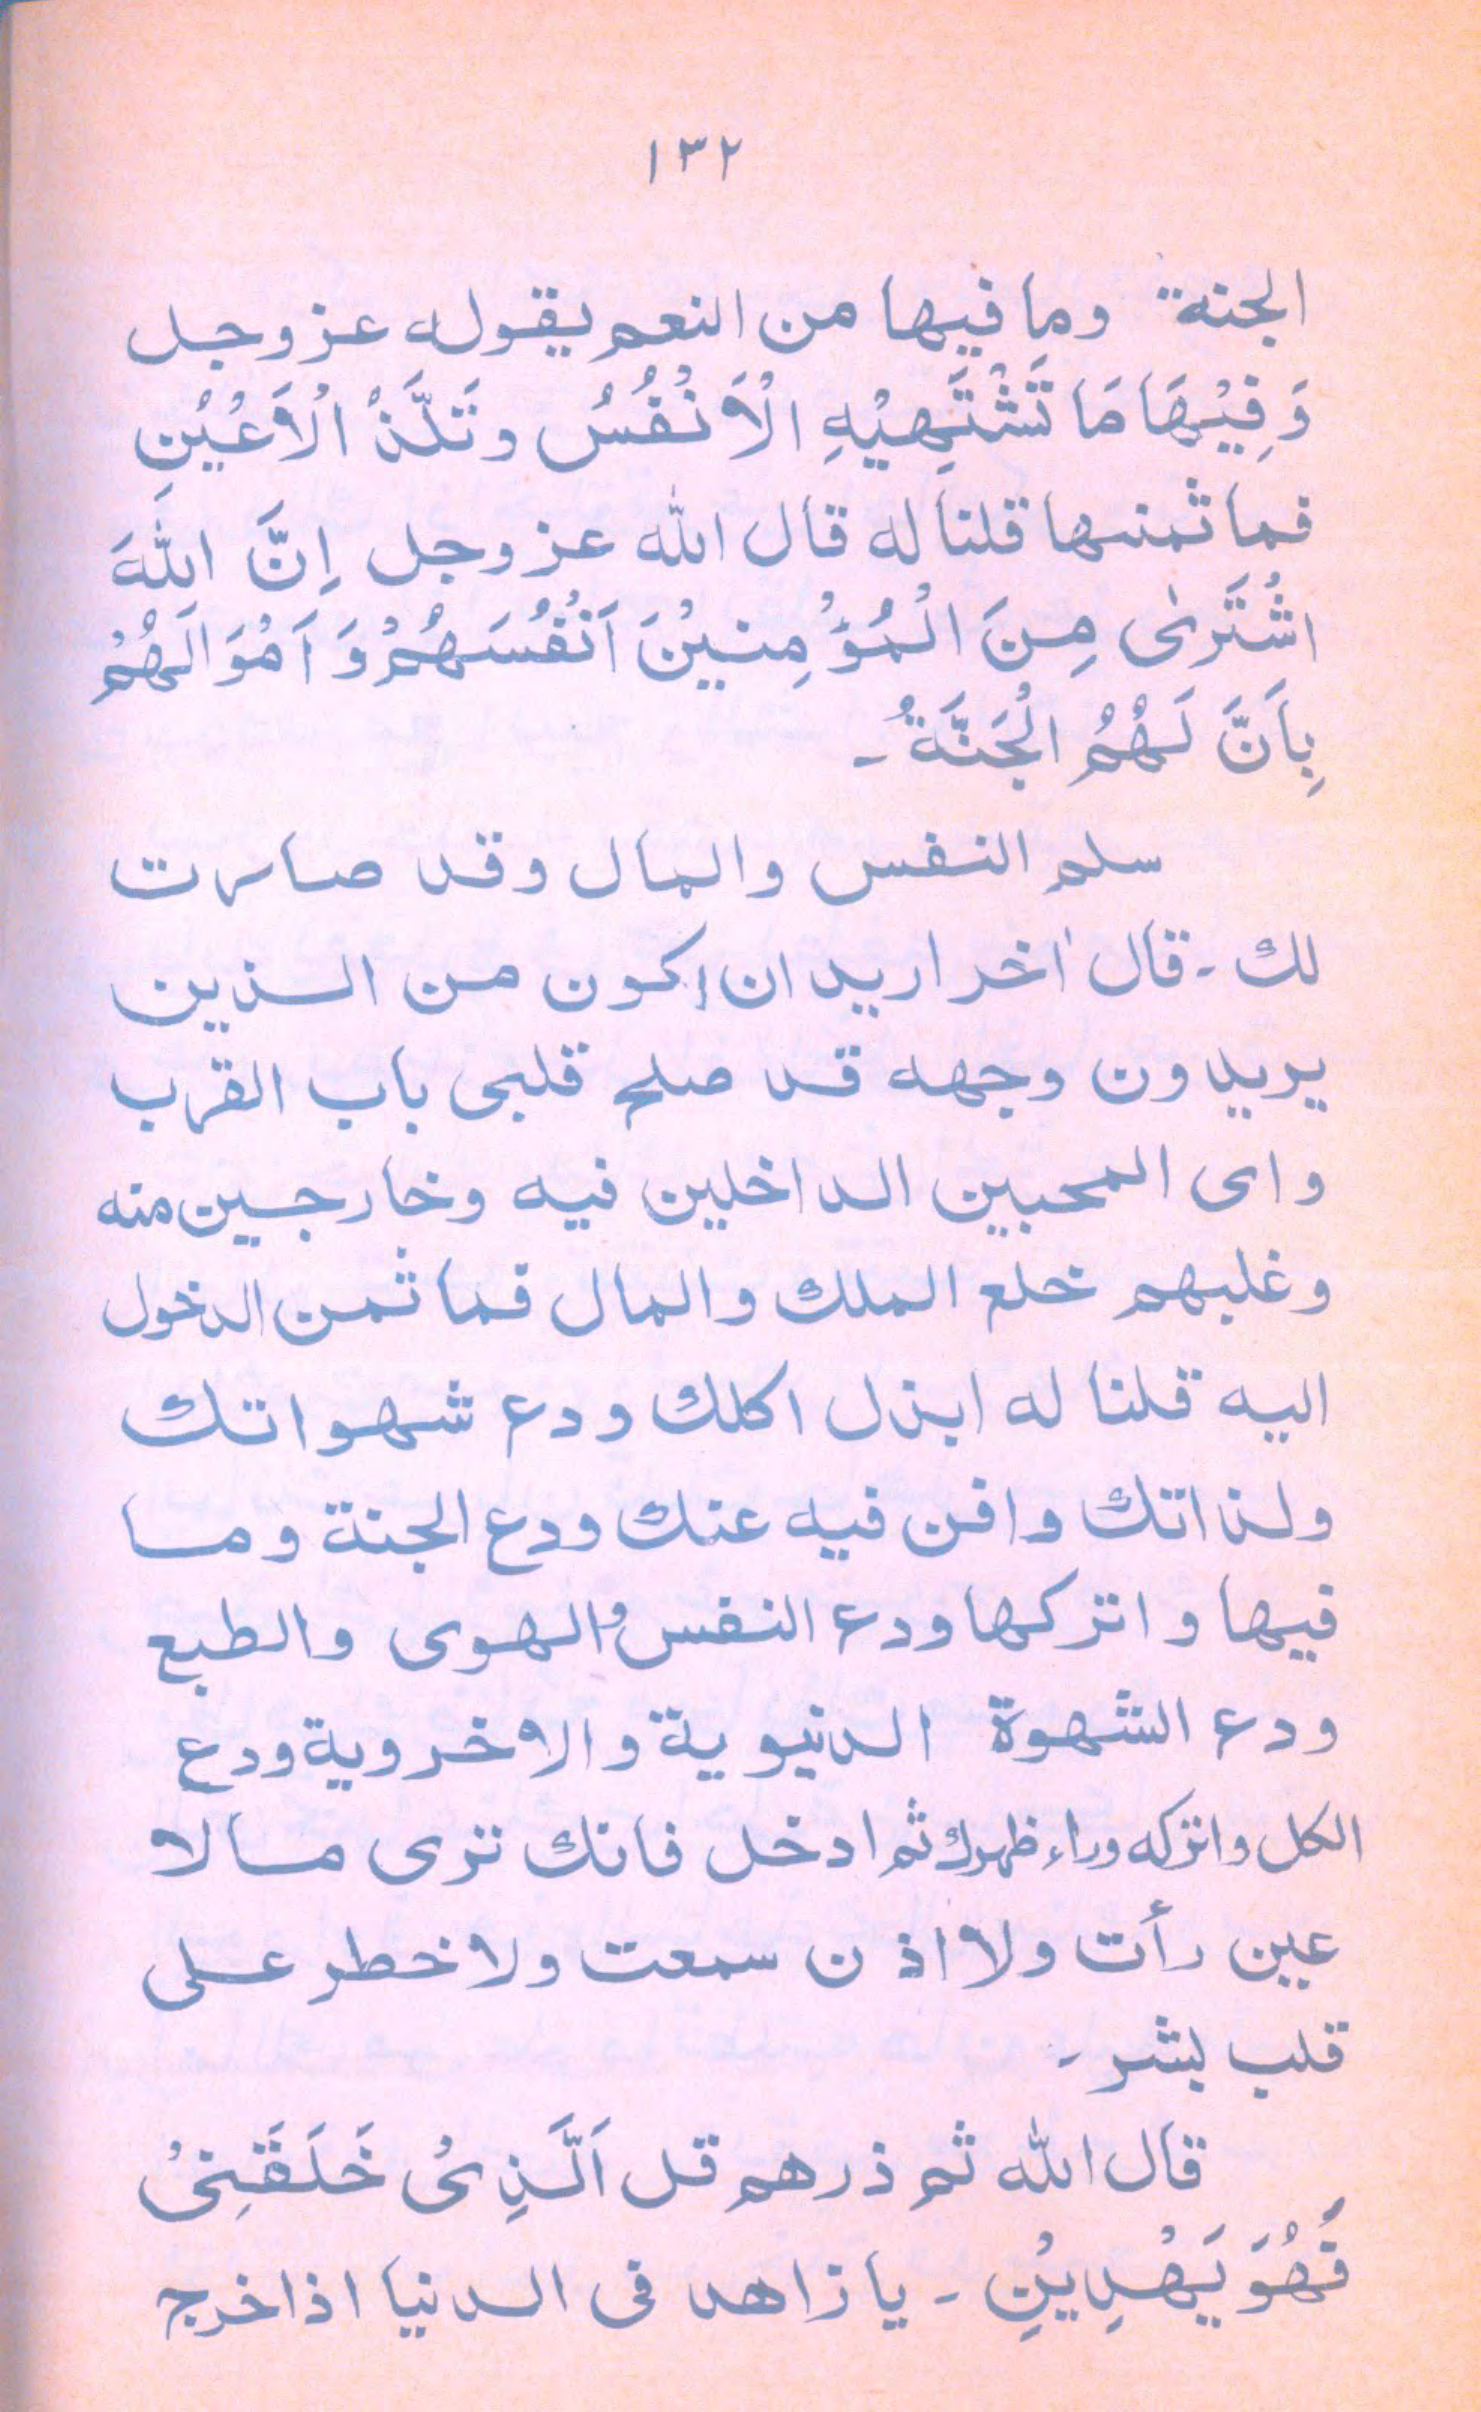 ١٣٢
الجنة وما فيها من النعم يقوله عز وجل
وَفِيْهَا مَا تَشْتَهِيْهِ الْاَنْفُسُ وتَلَذْ الْاَعْيُنِ
فما ثمنها قلنا له قال الله عز وجل اِنَّ اللهَ
اشْتَرٰى مِنَ الْمُؤْمِنِيْنَ اَنْفُسَهُمْ وَاَمْوَالَهُمْ
بِاَنَّ لَهُمُ الْجَنَّةُ ـ
سلم النفس والمال وقد صارت
لك ـ قال اٰخر اريد ان اكون من الذين
يريدون وجهه قد صلح قلبى باب القرب
واى المحبين الداخلين فيه وخارجين منه
وغلبهم خلع الملك والمال فما ثمن الدخول
اليه قلنا له ابذل اكلك ودع شهواتك
ولذاتك وافن فيه عنك ودع الجنة وما
فيها واتركها ودع النفس والهوى والطبع
ودع الشهوة الدنيوية والاخروية ودع
الكل واتركه وراء ظهرك ثم ادخل فانك ترى مالا
عين رأت ولا اذن سمعت ولا خطر على
قلب بشر ـ
قال الله ثم ذرهم قل اَلَّذِىْ خَلَقَنِىْ
فَهُوَ يَهْدِيْنِ ـ يا زاهد فى الدنيا اذا خرج